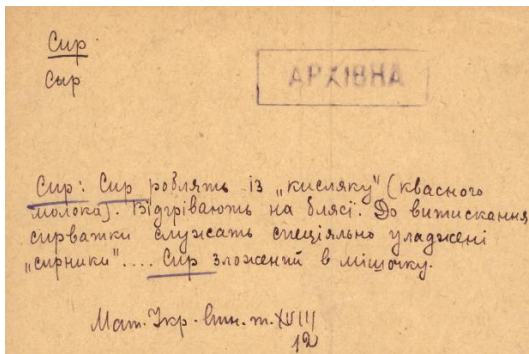 Сир
Сыр
АРХІВНА
Сир: Сир роблять із „кисляку" (квасного
молока). Відгрівають на блясі. До витискання
сирватки служать спеціяльно уладжені
„сирники".... Сир зложений в мішочку.
Мат. Укр. Етн. т. XVIII
12